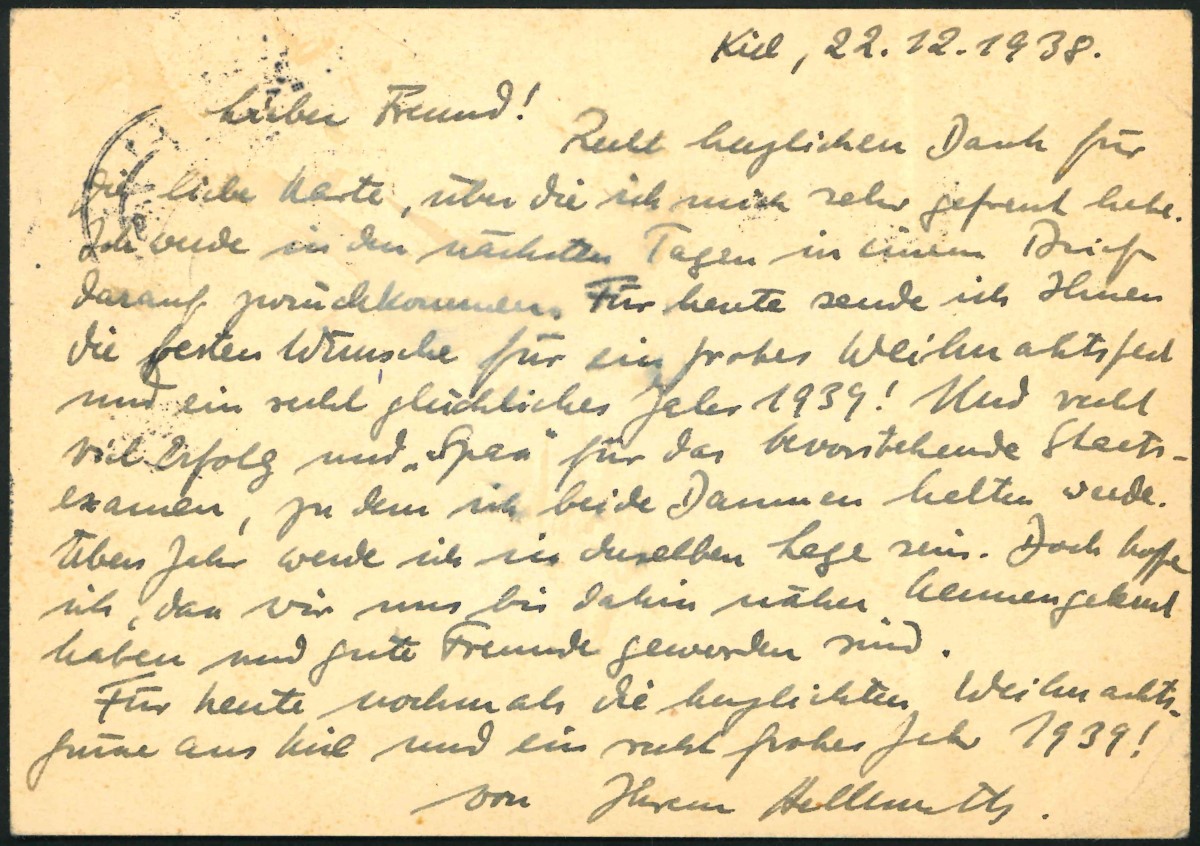 Kiel, 22.12.1938.
Lieber Freund!
Recht herzlichen Dank für
die liebe Karte, über die ich mich sehr gefreut habe.
Ich werde in den nächsten Tagen in einem Brief
darauf zurückkommen. Für heute sende ich Ihnen
die besten Wünsche für ein frohes Weihnachtsfest
und ein recht glückliches Jahr 1939! Und recht
viel Erfolg und „Spaß“ für das bevorstehende Staats-
examen, zu dem ich beide Daumen halten werde.
Übers Jahr werde ich in derselben Lage sein. Doch hoffe
ich, daß wir uns bis dahin näher kennengelernt
haben und gute Freunde geworden sind.
Für heute nochmals die herzlichsten Weihnachts-
grüße aus Kiel und ein recht frohes Jahr 1939!
von Ihrem Hellmuth.